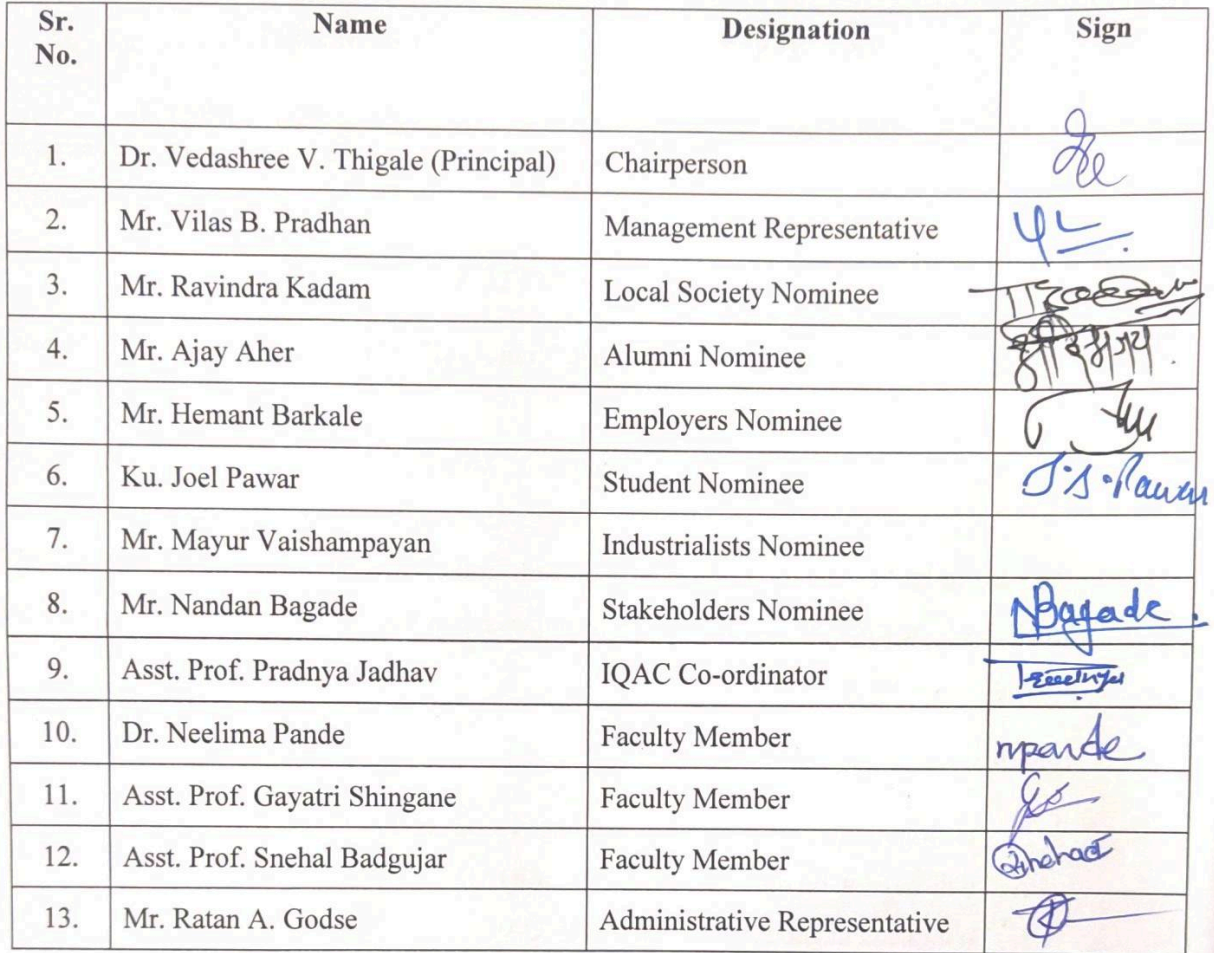 Sr. No. Name Designation Sign
1. Dr. Vedashree V. Thigale (Principal) Chairperson
2. Mr. Vilas B. Pradhan Management Representative
3. Mr. Ravindra Kadam Local Society Nominee
4. Mr. Ajay Aher Alumni Nominee
5. Mr. Hemant Barkale Employers Nominee
6. Ku. Joel Pawar Student Nominee J.S.Pawar
7. Mr. Mayur Vaishampayan Industrialists Nominee
8. Mr. Nandan Bagade Stakeholders Nominee NBagade.
9. Asst. Prof. Pradnya Jadhav IQAC Co-ordinator
10. Dr. Neelima Pande Faculty Member npande
11. Asst. Prof. Gayatri Shingane Faculty Member
12. Asst. Prof. Snehal Badgujar Faculty Member
13. Mr. Ratan A. Godse Administrative Representative